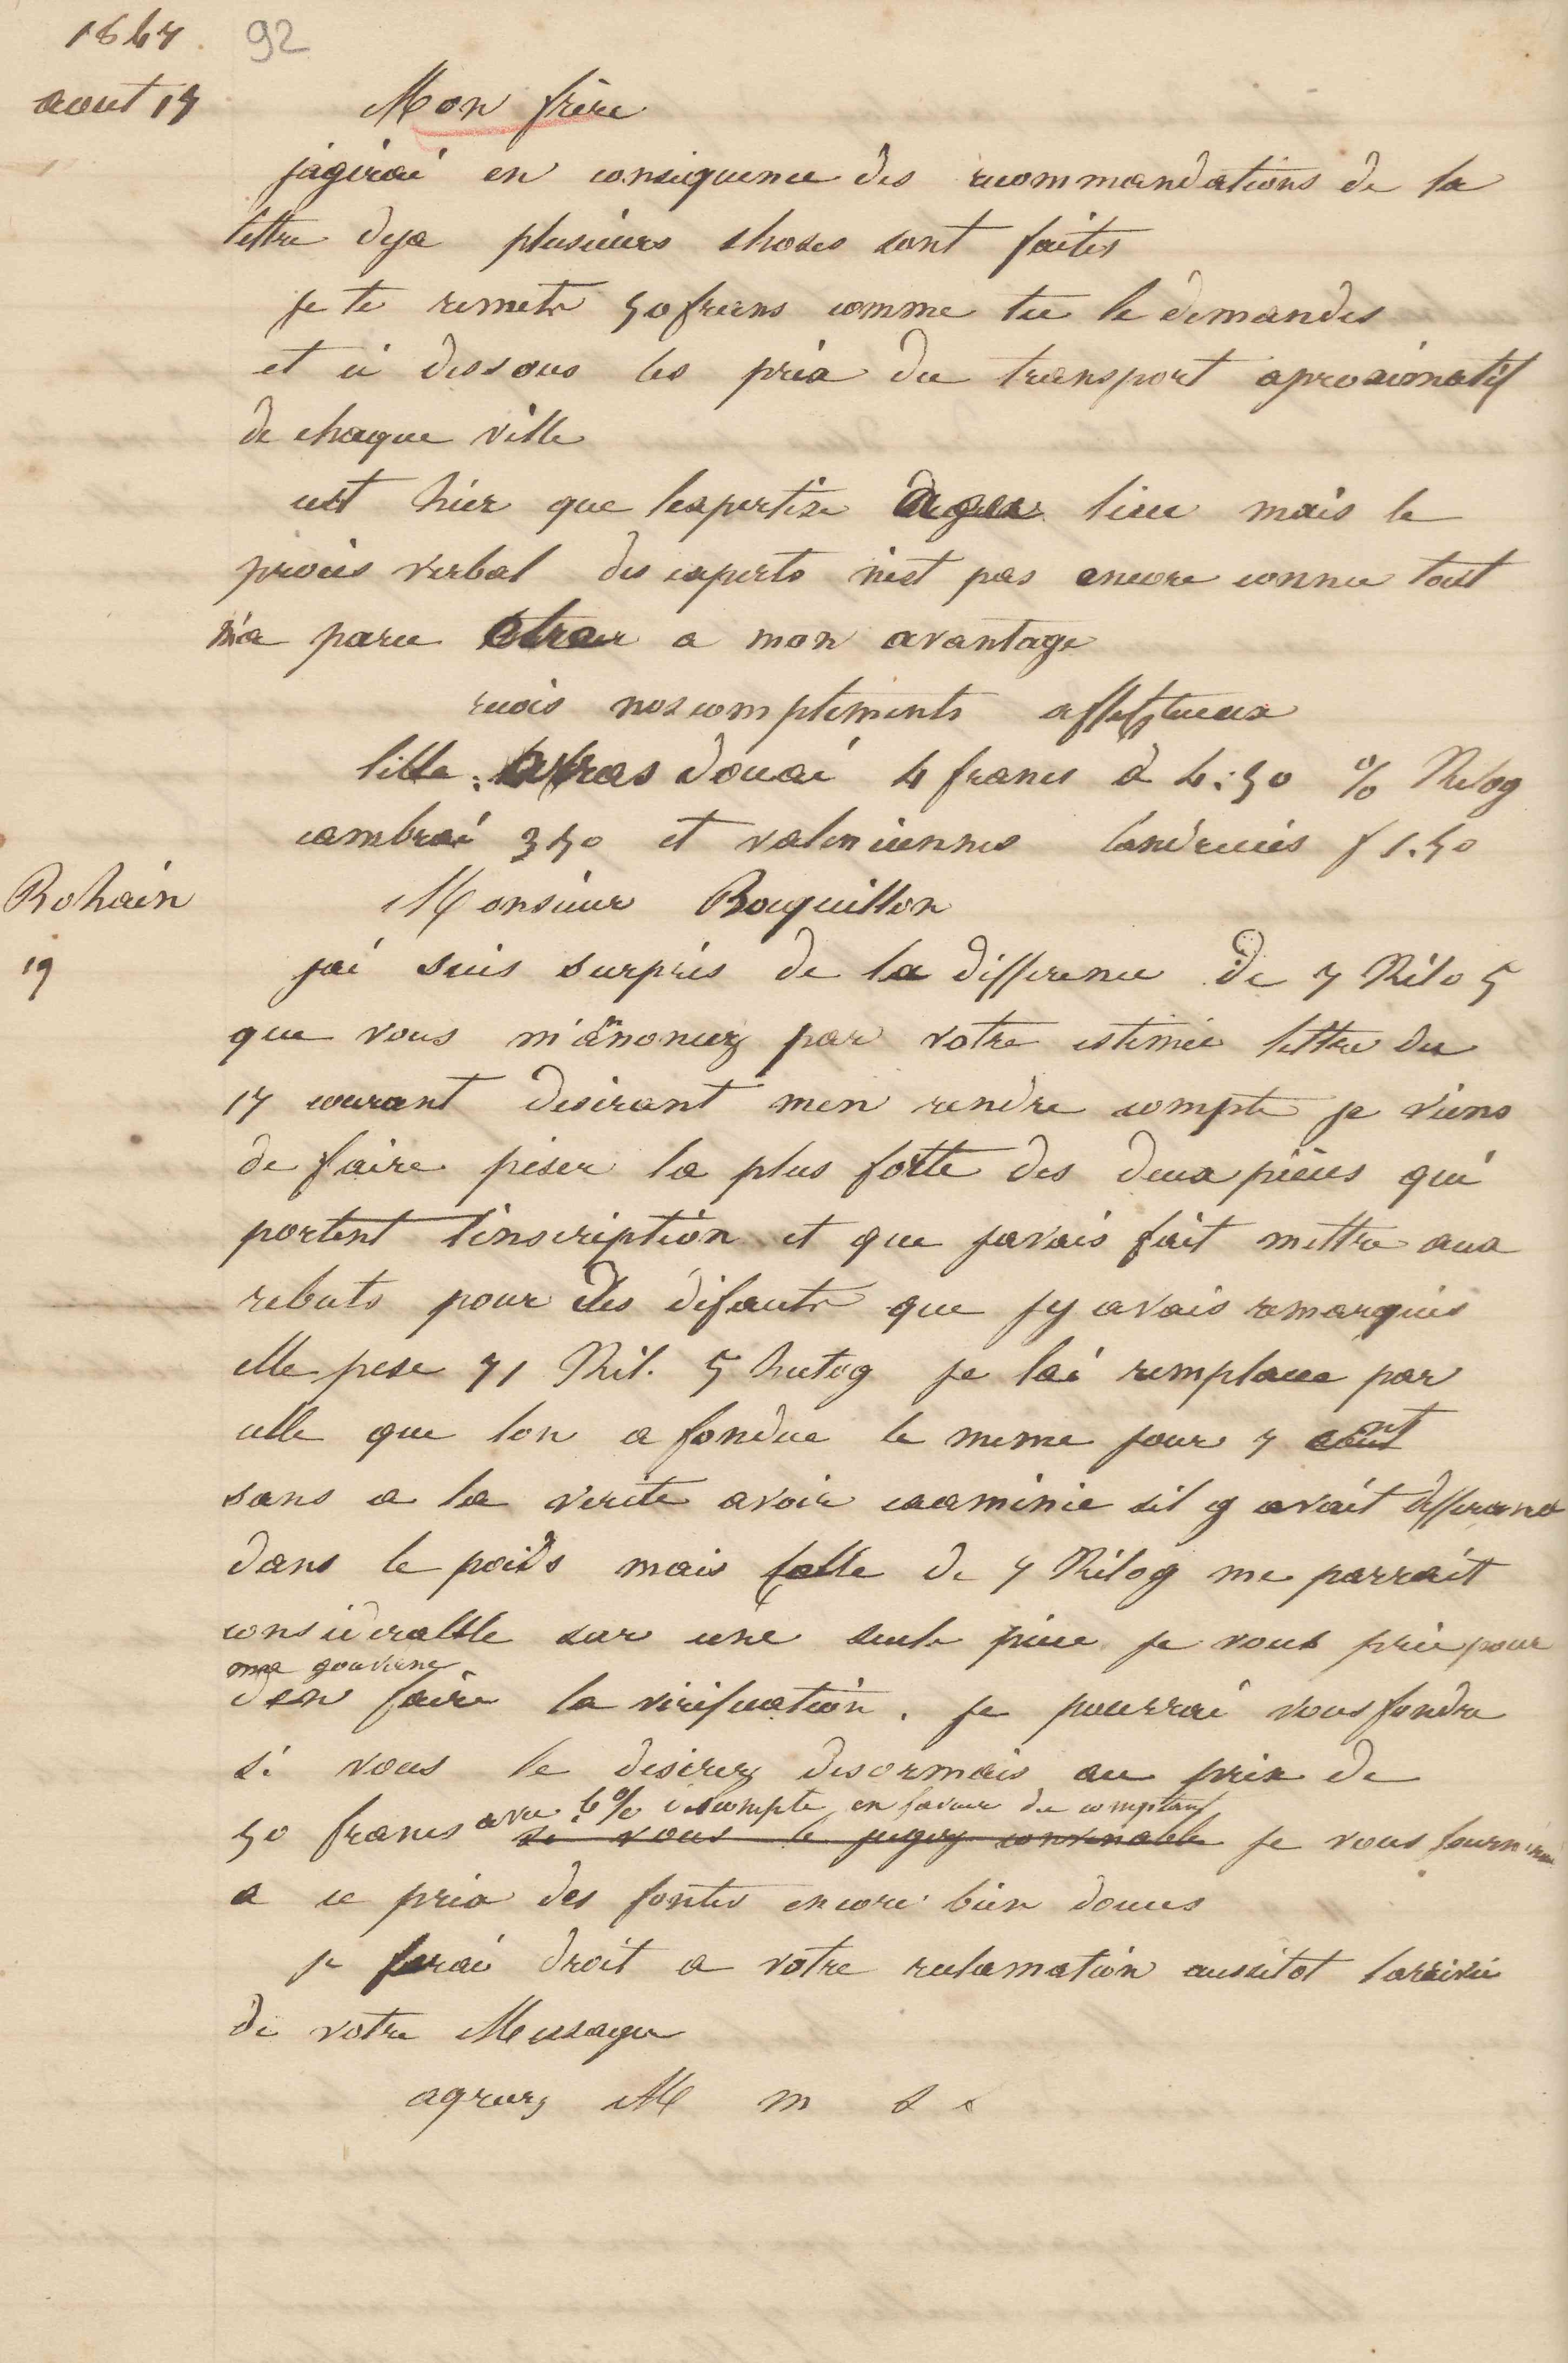 1847.
92
aout 17
Mon frère
jagirai en consequence des recommandations de ta
lettre deja plusieurs choses sont faites
je te remets 50 francs comme tu le demandes
et ci dessous les prix du transport aproximatif
de chaque ville
cest hier que lexpertise a lieu mais le
procès verbal des experts n'est pas encore connu tout
m'a paru etre a mon avantage
recois nos compliments affectueux
lille : arras douai 4 francs à 4:50 % Kilog
cambrai 3 50 et valenciennes landrecies f 1.50
Bohain
Monsieur Bouquillon
19
jai suis surpris de la difference de 7 Kilo 5
que vous m'annoncez par votre estimée lettre du
17 courant desirant men rendre compte je viens
de faire peser la plus forte des deux pièces qui
portent l'inscription et que javais fait mettre aux
rebuts pour des défauts que jy avais remarqués
elle pese 71 Kil. 5 hectog je lai remplacee par
celle que lon a fondue le meme jour 7 aout
sans a la verite avoir examinée sil y avait differance
dans le poids mais celle de 7 Kilog me parrait
considerable sur une seule pièce je vous prie pour
ma gouverne
den faire la vérification. je pourrai vous fondre
si vous le desirez desormais au prix de
avec 6 % descompte en faveur du comptant
50 francs si vous le jugez convenable je vous fournirai
a ce prix des fontes encore bien douces
je ferai droit a votre reclamation aussitot larrivée
de votre Messager
agreez M m s